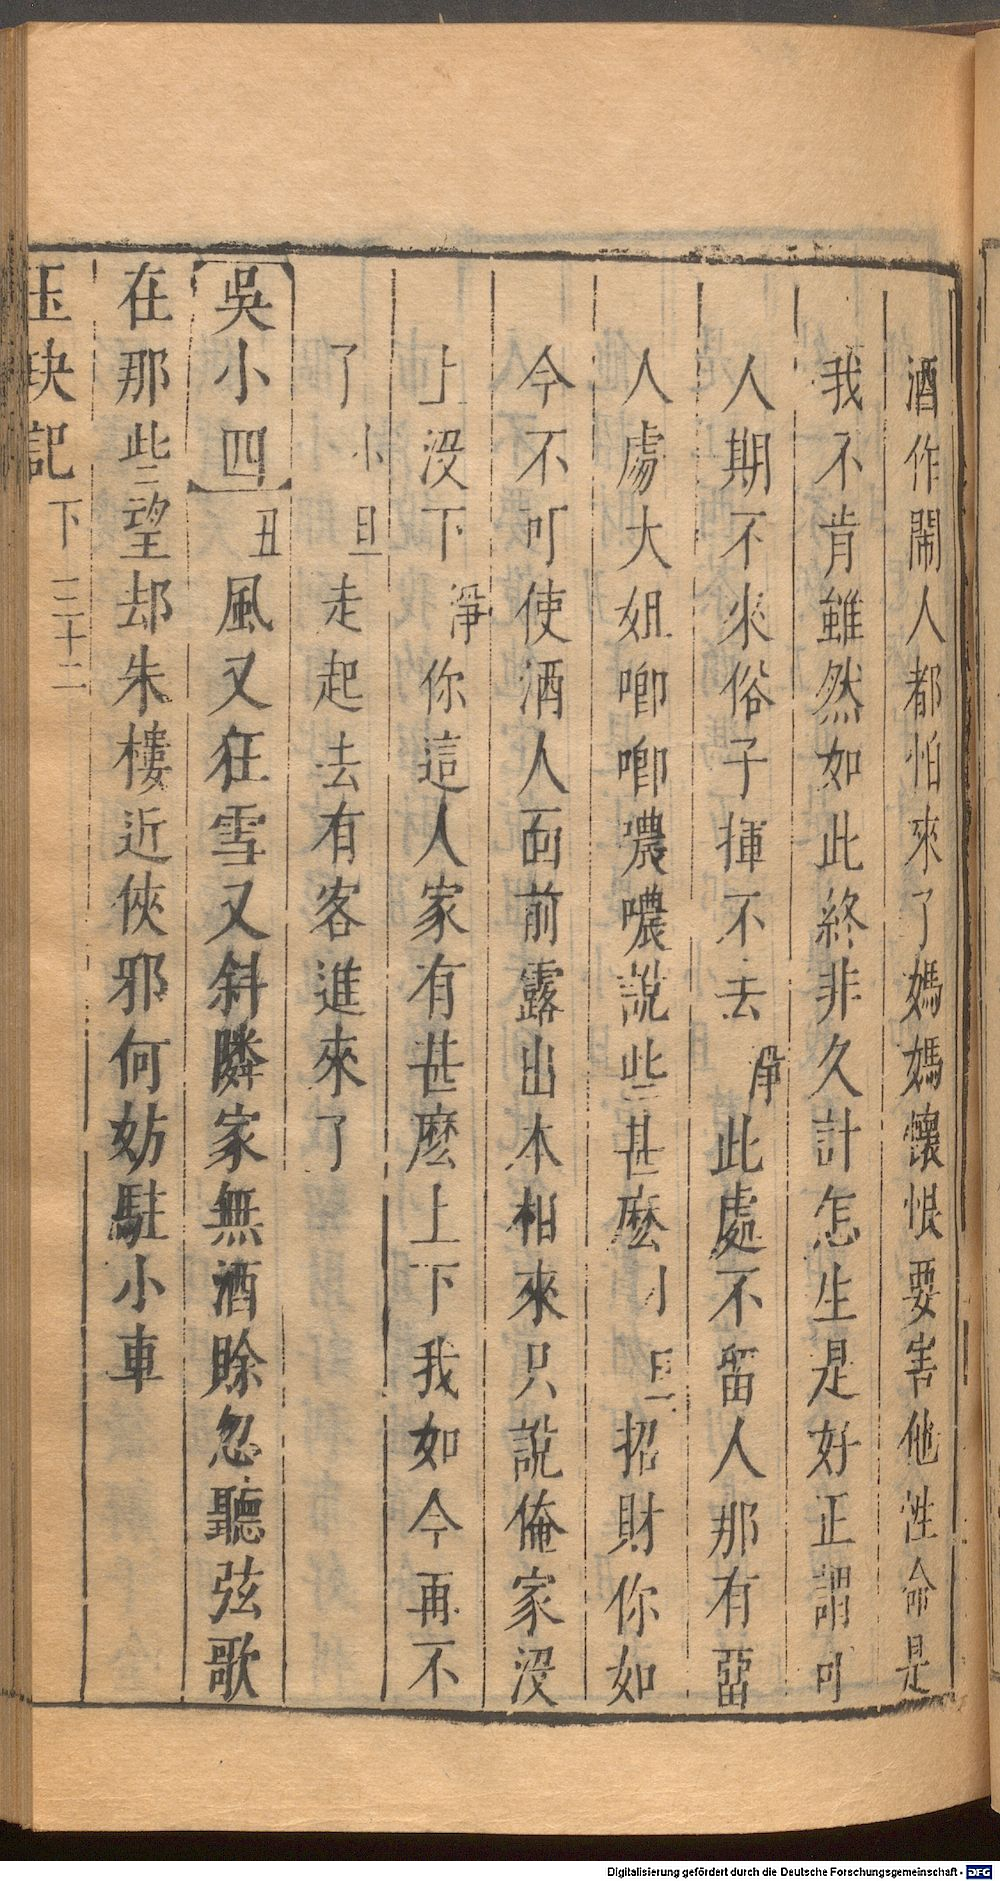 酒作鬧人都怕來了媽媽懷恨要害他性命是
我不肯雖然如此終非久計怎生是好正謂可
人期不來俗子揮不去淨此處不留人那有惡
人處大姐唧唧噥噥說些甚麽小旦招財你如
今不可使酒人面前露出本相來只說俺家沒
上沒下淨你這人家有甚麽上下我如今再不
了小旦走起去有客進來了
吳小四丑風又狂雪又斜隣家無酒賒忽聽弦歌
在那些望却朱樓近俠邪何妨駐小車
玉玦記下三十二
Digitalisierung gefördert durch die Deutsche Forschungsgemeinschaft - DFG